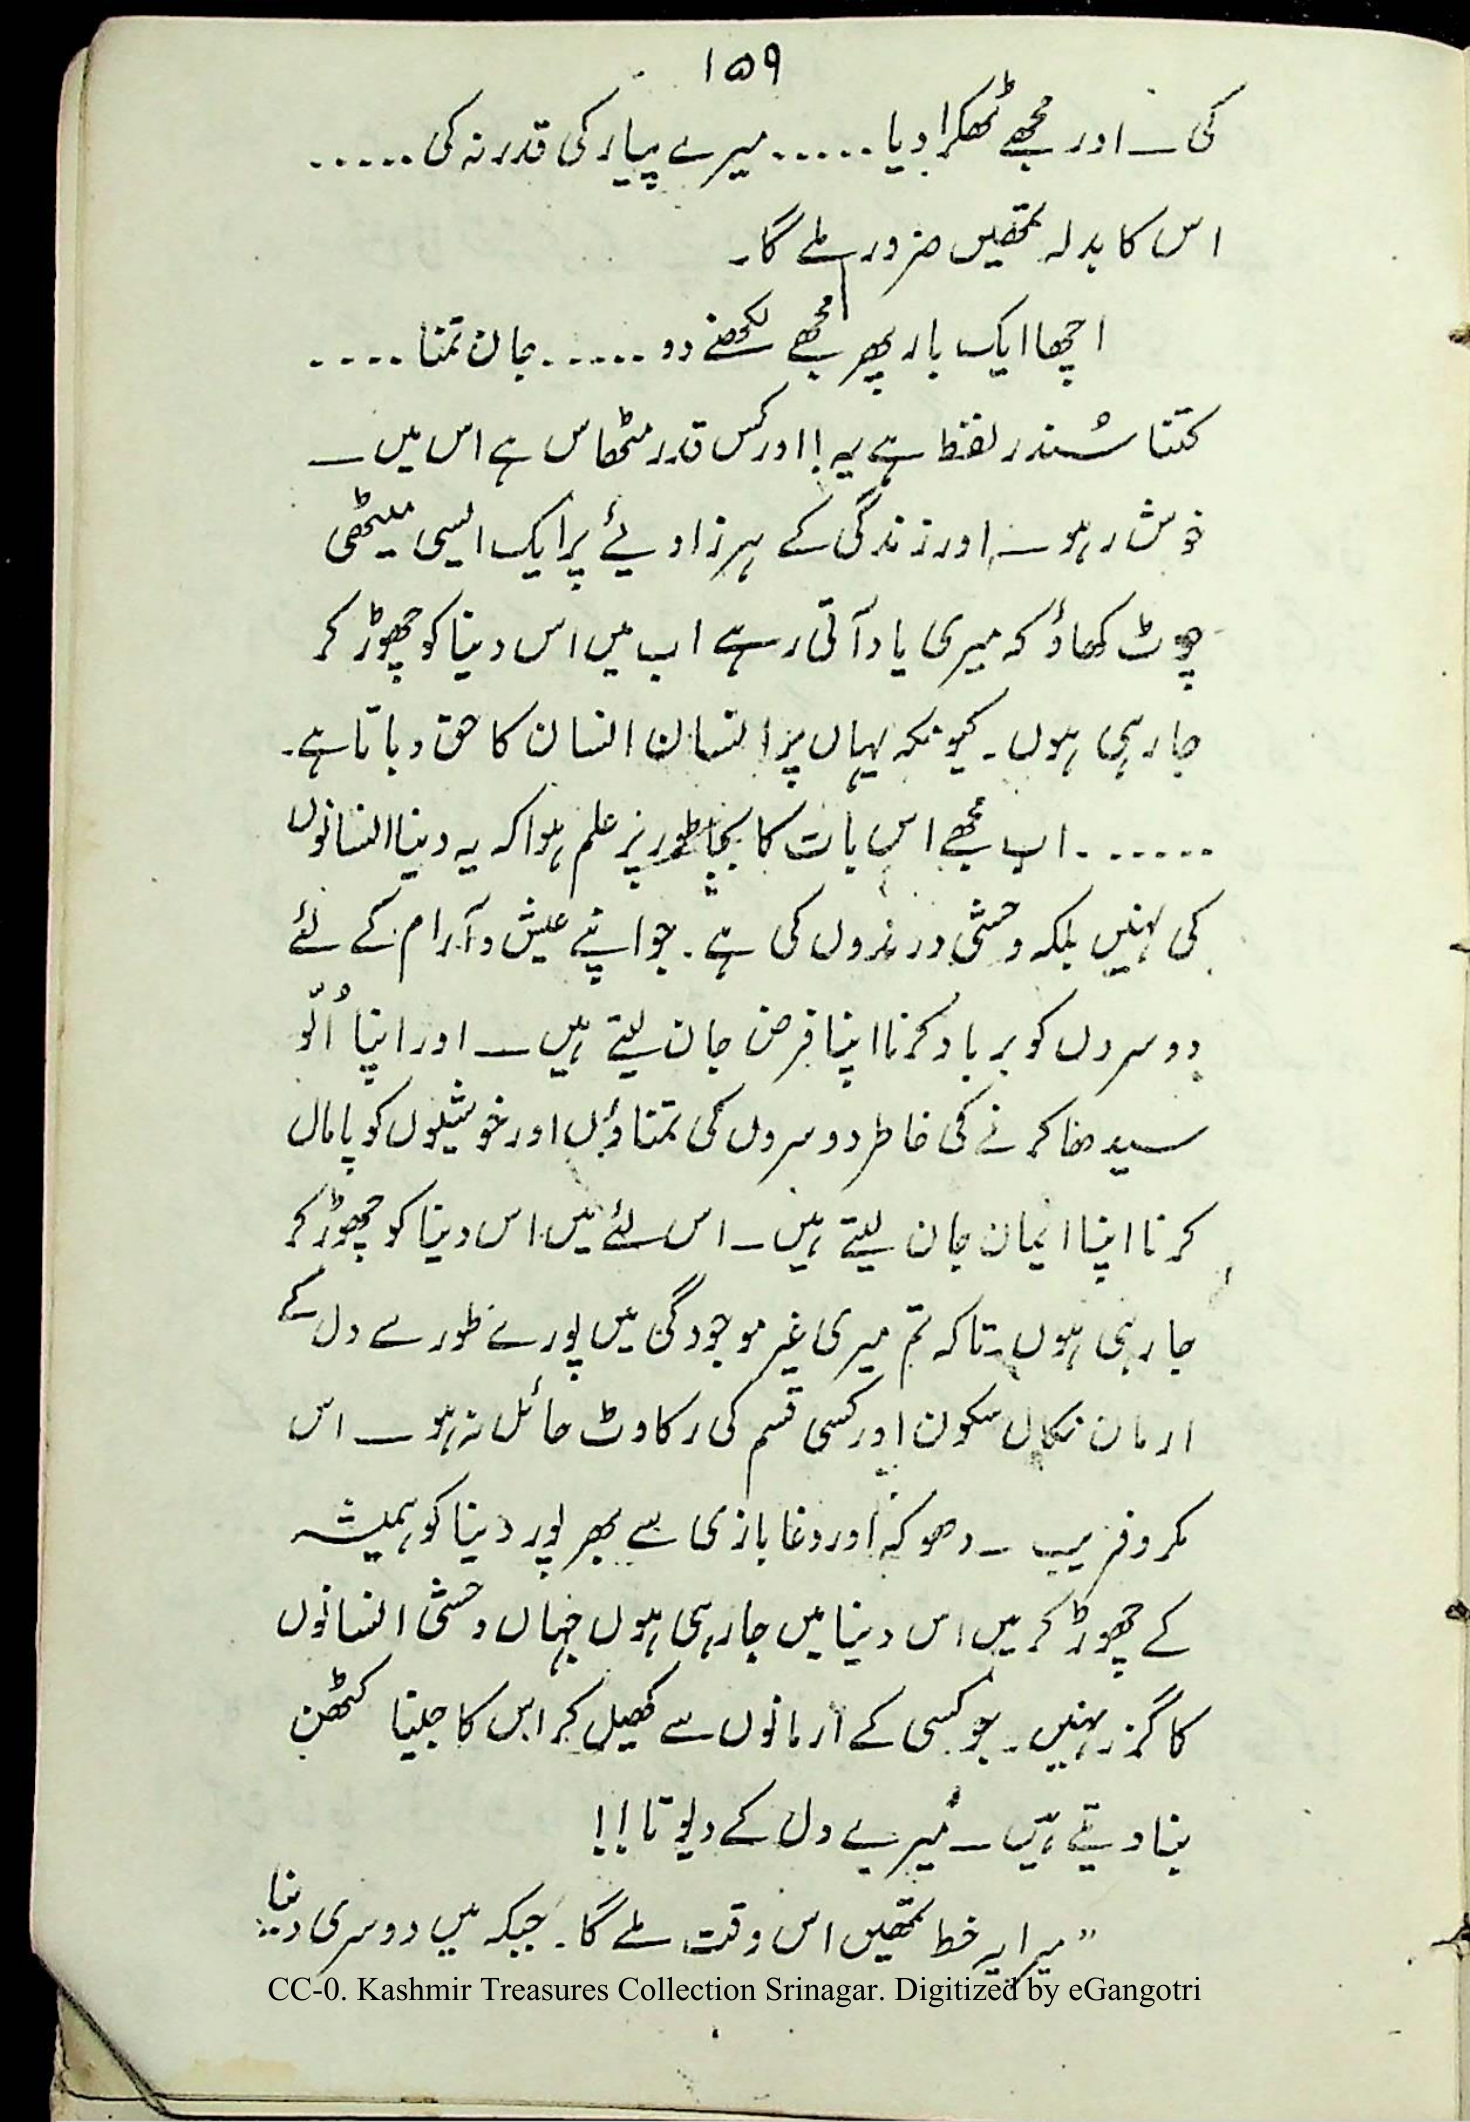 ۱۵۹
کی ـ اور مجھے ٹھکرا دیا ..... میرے پیار کی قدر نہ کی .....
اس کا بدلہ تمھیں ضرور ملے گا۔
اچھا ایک بار پھر مجھے لکھنے دو ..... جان تمنا ....
کتنا سُندر لفظ ہے یہ! اور کس قدر مٹھاس ہے اس میں ـ
خوش رہو ـ اور زندگی کے ہر زاویئے پر ایک ایسی میٹھی
چوٹ کھاؤ کہ میری یاد آتی رہے اب میں اس دنیا کو چھوڑ کر
جا رہی ہوں۔ کیونکہ یہاں پر انسان انسان کا حق دباتا ہے۔
...... اب مجھے اس بات کا بجا طور پر علم ہوا کہ یہ دنیا انسانوں
کی نہیں بلکہ وحشی درندوں کی ہے۔ جو اپنے عیش و آرام کے لئے
دوسروں کو برباد کرنا اپنا فرض جان لیتے ہیں ـ اور اپنا اُلّو
سیدھا کرنے کی خاطر دوسروں کی تمناؤں اور خوشیوں کو پامال
کرنا اپنا ایمان جان لیتے ہیں ـ اس لئے میں اس دنیا کو چھوڑ کر
جا رہی ہوں۔ تاکہ تم میری غیر موجودگی میں پورے طور سے دل کے
ارمان نکال سکون اور کسی قسم کی رکاوٹ حائل نہ ہو ـ اس
مکر و فریب ـ دھوکہ اور دغا بازی سے بھر پور دنیا کو ہمیشہ
کے چھوڑ کر میں اس دنیا میں جا رہی ہوں جہاں وحشی انسانوں
کا گزر نہیں۔ جو کسی کے ارمانوں سے کھیل کر اس کا جینا کٹھن
بنا دیتے ہیں ـ میرے دل کے دیوتا!!
"میرا یہ خط تمھیں اس وقت ملے گا۔ جبکہ میں دوسری دنیا
CC-0. Kashmir Treasures Collection Srinagar. Digitized by eGangotri